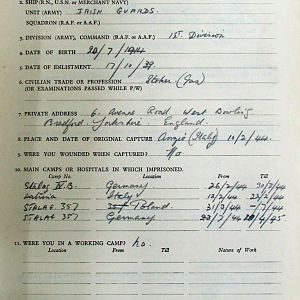 2. SHIP (R.N., U.S.N. or MERCHANT NAVY)
UNIT (ARMY) IRISH GUARDS.
SQUADRON (R.A.F. or A.A.F.)
3. DIVISION (ARMY), COMMAND (R.A.F. or A.A.F.) 1ST Division
4. DATE OF BIRTH 20/7/1914
5. DATE OF ENLISTMENT 17/10/39.
6. CIVILIAN TRADE OR PROFESSION Stoker (Gas)
(OR EXAMINATIONS PASSED WHILE P/W)
7. PRIVATE ADDRESS 6. Avenue Road West Bowling
Bradford. Yorkshire England.
8. PLACE AND DATE OF ORIGINAL CAPTURE Anzio (Italy) 10/2/44.
9. WERE YOU WOUNDED WHEN CAPTURED? No
10. MAIN CAMPS OR HOSPITALS IN WHICH IMPRISONED.
Camp No. Location From Till
Stalag IV.B. Germany 26/2/44 30/2/44
Latrina Italy 12/2/44 22/2/44
STALAG. 357 Poland. 31/3/44 -/7/44
STALAG 357 Germany /7/44 /4/45
11. WERE YOU IN A WORKING CAMP? No.
Location From Till Nature of Work